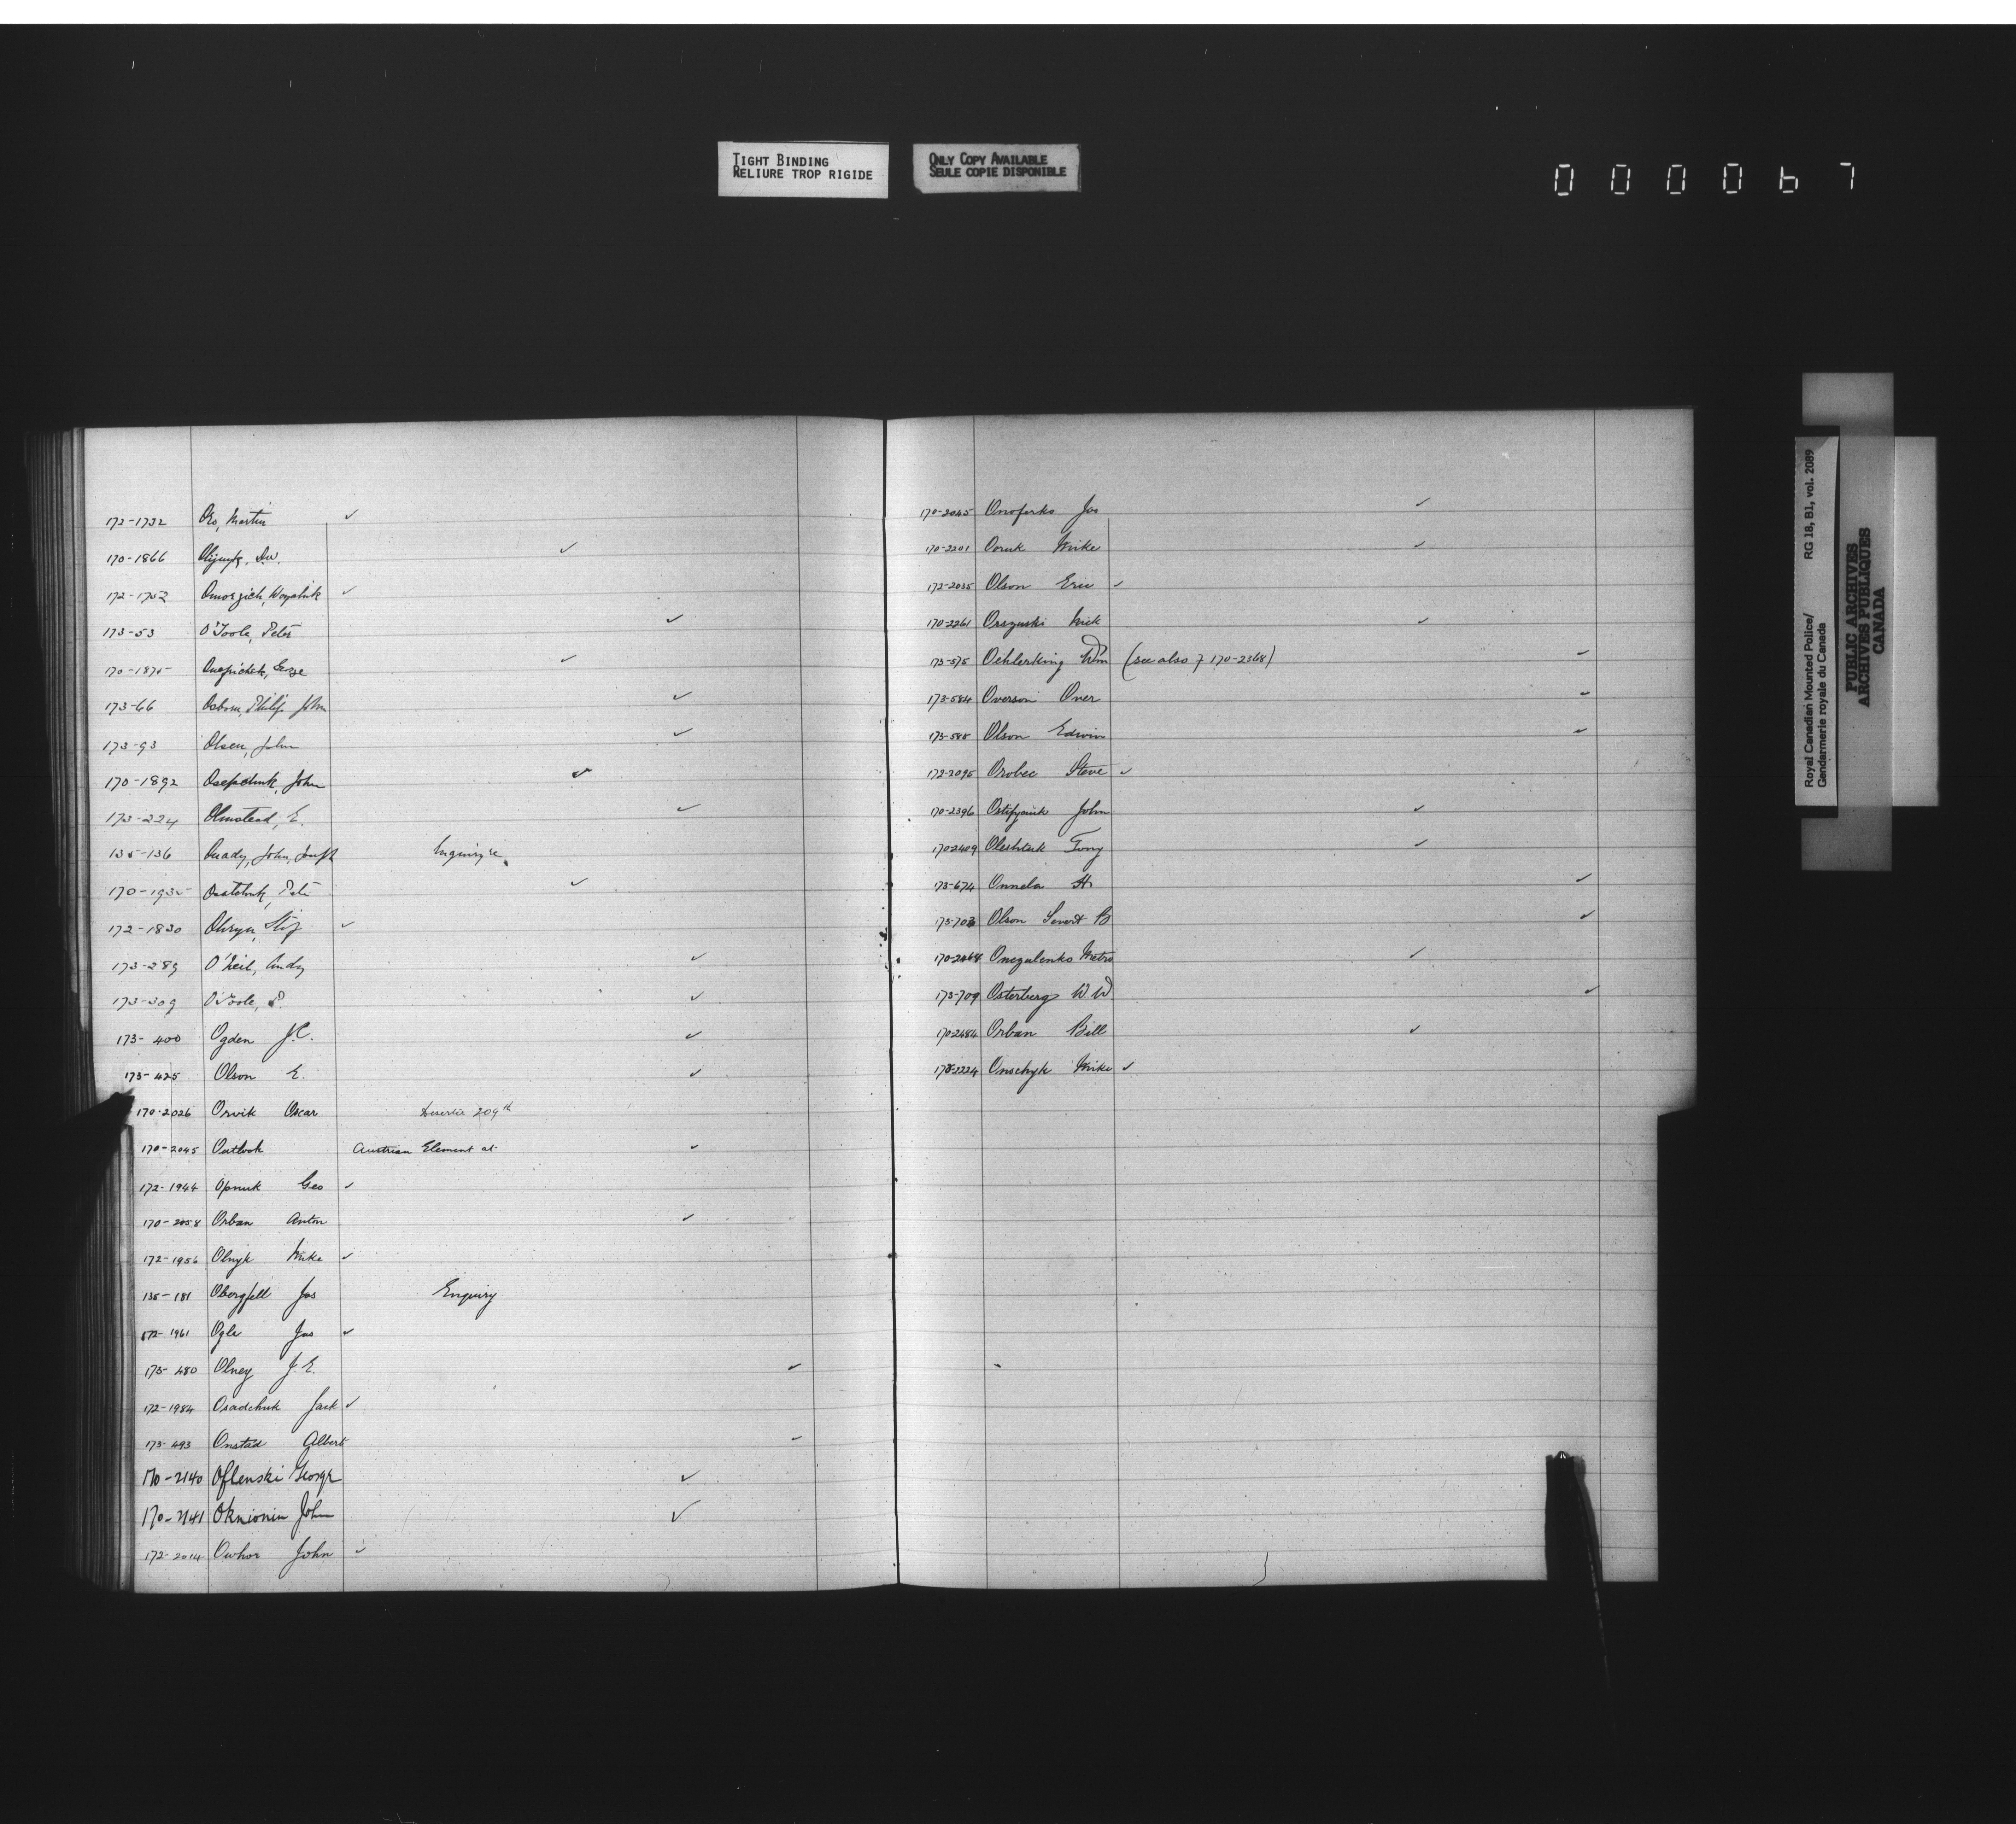 TIGHT BINDING
RELIURE TROP RIGIDE
ONLY COPY AVAILABLE
SEULE COPIE DISPONIBLE
0 0 0 0 6 7
172-1732 Martin ✓
170-1866 ✓
172-1752 ✓
173-53 O'Toole, Peter ✓
170-1875 ✓
173-66 Osborn, Philip John ✓
173-93 Olsen, John ✓
170-1892 Osepchuk, John ✓
173-224 Olmstead, E. ✓
135-136 John, Joseph Inquiry re
170-1935 Peter ✓
172-1830 ✓
173-289 O'Neil, Andy ✓
173-309 O'Toole, P. ✓
173-400 Ogden J.C. ✓
173-425 Olson E. ✓
170-2026 Orvik Oscar Deserter 209th
170-2045 Outlook Austrian Element at ✓
172-1944 Opnuk Geo ✓
170-2058 Orban Anton ✓
172-1956 Olnyk Mike ✓
135-181 Obergfell Jos Enquiry
172-1961 Ogle Jas ✓
173-480 Olney J.E. ✓
172-1984 Osadchuk Jack ✓
173-493 Onstad Albert ✓
170-2140 Oflenski George ✓
170-2141 Oknionin John ✓
172-2014 Owhor John ✓
170-2045 Onoferko Jas ✓
170-2201 Mike ✓
172-2035 Olson Eric ✓
170-2261 Orszuski Nick ✓
173-575 Oehlerking Wm (see also 170-2368) ✓
173-584 Overson Over ✓
173-585 Olson Edwin ✓
172-2095 Orobec Steve ✓
170-2396 John ✓
170-2409 Oleshtuk Tony ✓
173-674 Onnela H ✓
173-703 Olson Severt B ✓
170-2464 Onegalenko Metro ✓
173-709 Osterberg W W ✓
170-2484 Orban Bill ✓
172-2224 Onschyk Mike ✓
Royal Canadian Mounted Police/ RG 18, B1, vol. 2089
Gendarmerie royale du Canada
PUBLIC ARCHIVES
ARCHIVES PUBLIQUES
CANADA